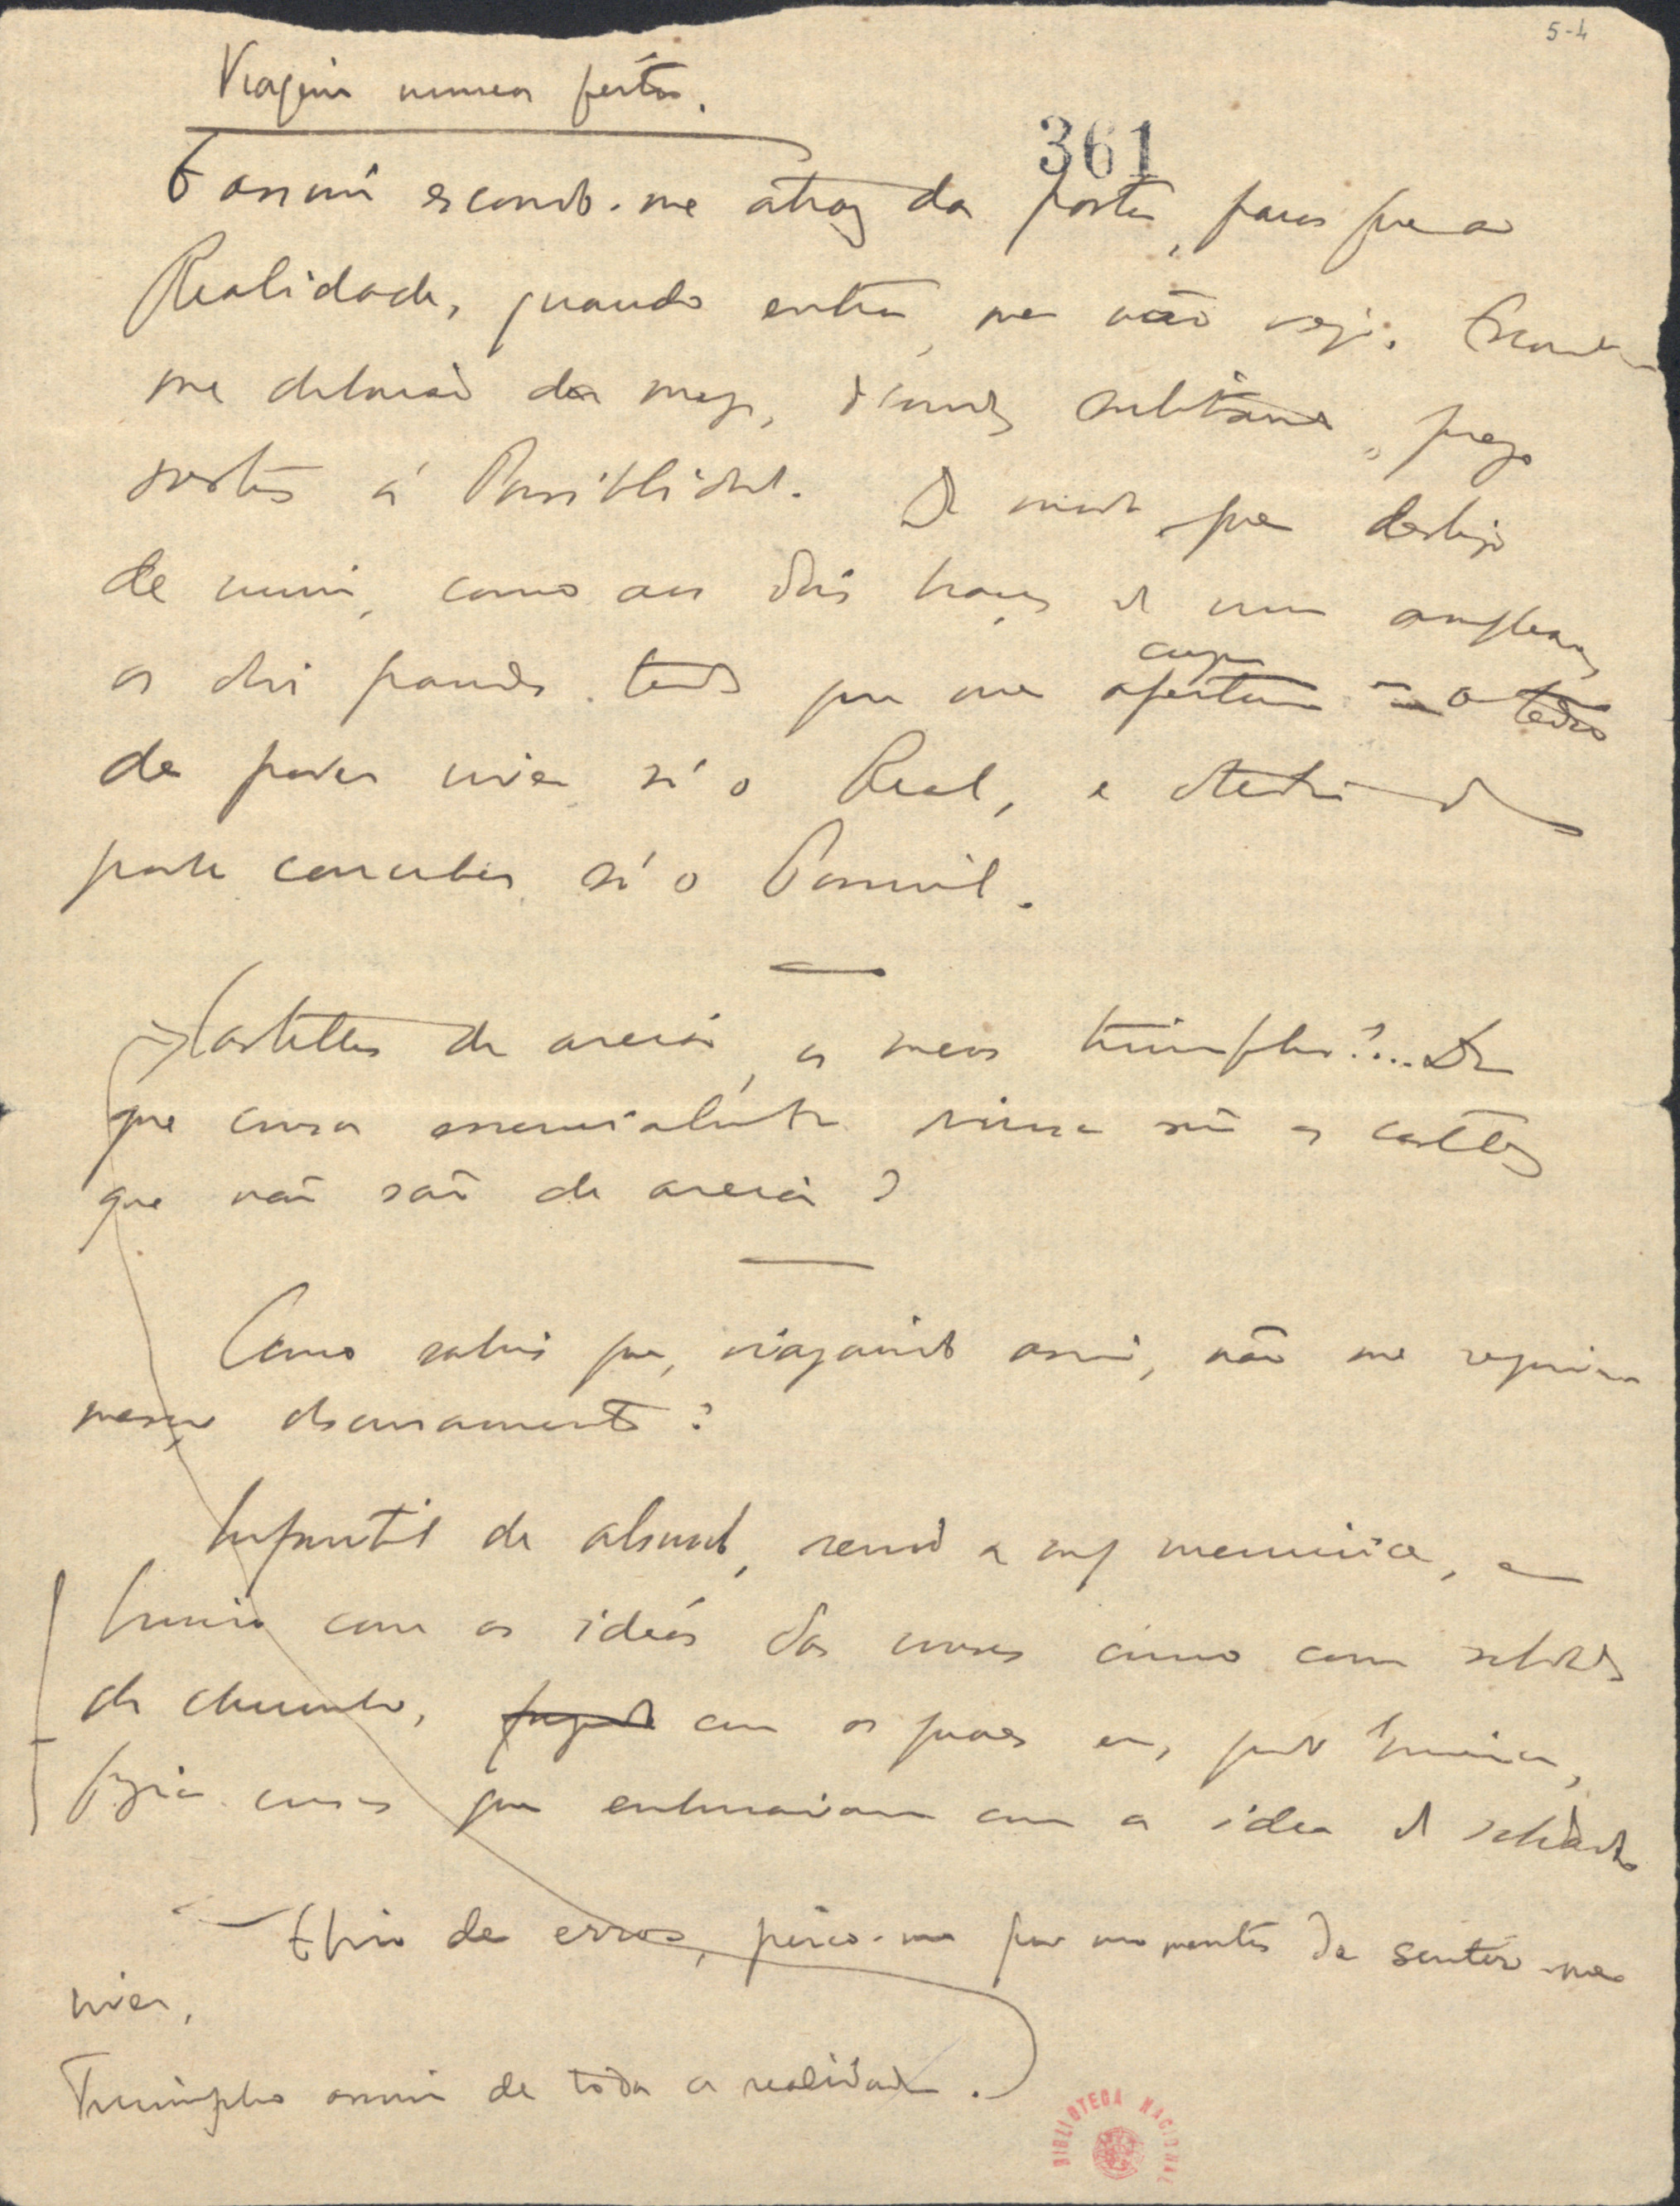 5-4
Viagem nunca feita.
361
E assim escondo-me atraz da porta, para que a
Realidade, quando entra, me não veja. Escondo-
me debaixo da meza, d'onde, subitamente, prego
sustos á Possibilidade. De modo que desligo
de mim, como aos dois braços de um amplexo,
os dois grandes tedios que me apertam — o tedio
cingem
de poder viver só o Real, e o tedio de
poder conceber só o Possivel.
Castellos de areia, os meus triumphos?... De
que cousa essencialmente divina são os castellos
que não são de areia?
Como sabeis que, viajando assim, não me rejuvenesço
obscuramente?
Infantil de absurdo, revivo a minha meninice, e
brinco com as idéas das cousas como com soldados
de chumbo, com os quaes eu, quando creança,
fazia cousas que embirravam com a idéa de soldado
Ebrio de erros, perco-me por momentos de sentir-me
viver.
Triumpho assim de toda a realidade.
BIBLIOTECA NACIONAL